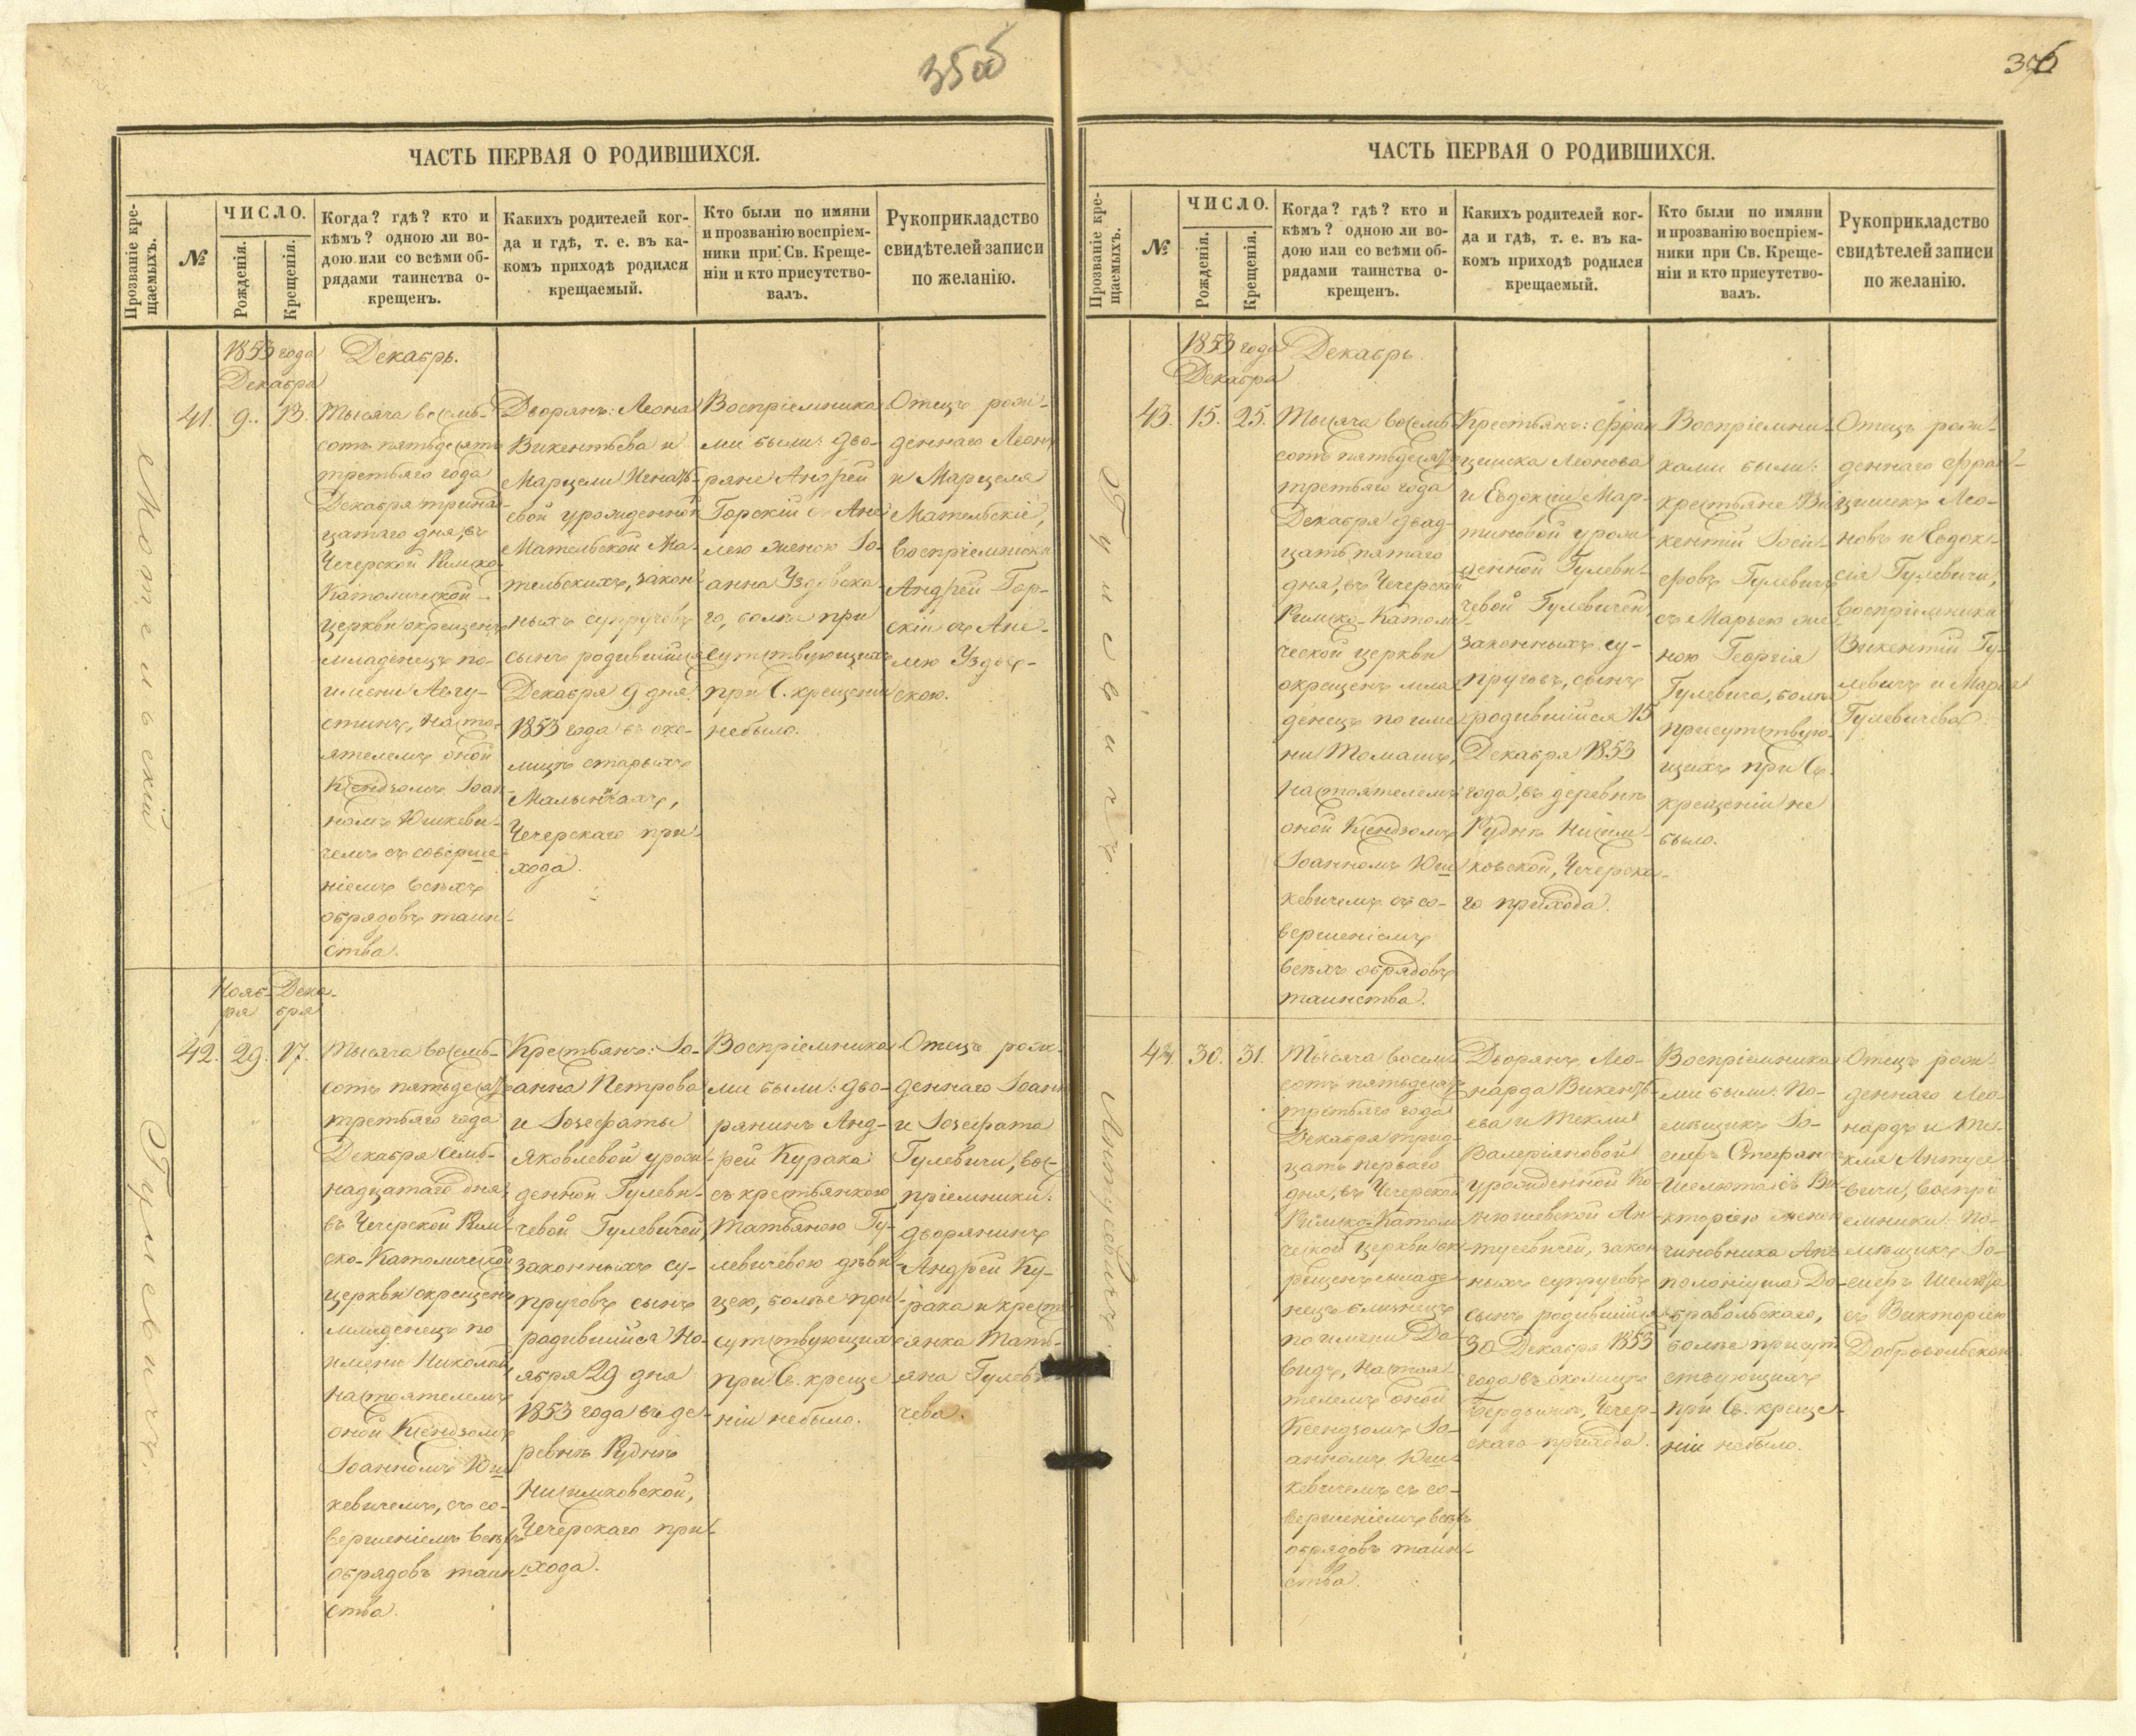 35об
ЧАСТЬ ПЕРВАЯ О РОДИВШИХСЯ.
Прозваніе кре-
щаемыхъ.
№
ЧИСЛО.
Рожденія.
Крещенія.
Когда? гдѣ? кто и
кѣмъ? одною ли во-
дою или со всѣми об-
рядами таинства о-
крещенъ.
Какихъ родителей ког-
да и гдѣ, т. е. въ ка-
комъ приходѣ родился
крещаемый.
Кто были по имяни
и прозванію воспріем-
ники при Св. Креще-
ніи и кто присутство-
валъ.
Рукоприкладство
свидѣтелей записи
по желанію.
1853 года
Декабря
Декабрь.
41.
9.
13.
Тысяча восемь-
сотъ пятьдесятъ
третьяго года
Декабря трина-
цатаго дня, въ
Чечерской Римско-
Католической
церкви окрещенъ
младенецъ по
имени Авгу-
стинъ, насто-
ятелемъ оной
Ксендзомъ Іоан-
номъ Юшкеви-
чемъ съ соверше-
ніемъ всѣхъ
обрядовъ таин-
ства.
Дворянъ: Леона
Викентьева и
Марцели Игнать-
евой урожденной
Мательской Ма-
тельскихъ, закон-
ныхъ супруговъ
сынъ родившійся
Декабря 9 дня
1853 года въ око-
лицѣ старыхъ
Малынічахъ,
Чечерскаго при-
хода.
Воспріемника-
ми были: дво-
ряне Андрей
Горскій съ Ане-
лею женою Іо-
анна Уздовска-
го, болѣе при
сутствующихъ
при С. крещеніи
небыло.
Отецъ рож-
деннаго Леонъ
и Марцеля
Мательскіе,
воспріемники
Андрей Гор-
скій съ Ане-
лею Уздов-
скою.
Мательскій
Нояб-
ря
Дека-
бря
42.
29.
17.
Тысяча восемь-
сотъ пятьдесятъ
третьяго года
Декабря семь-
надцатаго дня,
въ Чечерской Рим-
ско-Католической
церкви окрещенъ
младенецъ по
имени Николай,
настоятелемъ
оной Ксендзомъ
Іоанномъ Юш-
кевичемъ, съ со-
вершеніемъ всѣхъ
обрядовъ таин-
ства.
Крестьянъ: Іо-
анна Петрова
и Іозефаты
Яковлевой урож-
денной Гулеви-
чевой Гулевичей,
законныхъ су-
пруговъ сынъ
родившійся Но-
ября 29 дня
1853 года въ де-
ревнѣ Руднѣ
Нисимковской,
Чечерскаго при-
хода.
Воспріемника-
ми были: дво-
рянинъ Анд-
рей Курака
съ крестьянкою
Татьяною Гу-
левичевою дѣви-
цею, болѣе при-
сутствующихъ
при Св. креще-
ніи небыло.
Отецъ рож-
деннаго Іоаннъ
и Іозефата
Гулевичи, вос-
пріемники:
дворянинъ
Андрей Ку-
рака и кресть-
янка Тать-
яна Гулеви-
чева.
Гулевичъ.
ЧАСТЬ ПЕРВАЯ О РОДИВШИХСЯ.
Прозваніе кре-
щаемыхъ.
№
ЧИСЛО.
Рожденія.
Крещенія.
Когда? гдѣ? кто и
кѣмъ? одною ли во-
дою или со всѣми об-
рядами таинства о-
крещенъ.
Какихъ родителей ког-
да и гдѣ, т. е. въ ка-
комъ приходѣ родился
крещаемый.
Кто были по имяни
и прозванію воспріем-
ники при Св. Креще-
ніи и кто присутство-
валъ.
Рукоприкладство
свидѣтелей записи
по желанію.
1853 года
Декабря
Декабрь.
43.
15.
25.
Тысяча восемь-
сотъ пятьдесятъ
третьяго года
Декабря двад-
цать пятаго
дня, въ Чечерской
Римско-Католи-
ческой церкви
окрещенъ мла-
денецъ по име-
ни Томашъ,
настоятелемъ
оной Ксендзомъ
Іоанномъ Юш-
кевичемъ съ со-
вершеніемъ
всѣхъ обрядовъ
таинства.
Крестьянъ: Фран-
цишка Леонова
и Евдокіи Мар-
тиновой урож-
денной Гулеви-
чевой Гулевичей,
законныхъ су-
пруговъ, сынъ
родившійся 15
Декабря 1853
года, въ деревнѣ
Руднѣ Нисим-
ковской, Чечерска-
го прихода.
Воспріемни-
ками были:
крестьяне Ви-
кентій Іоси-
фовъ Гулевичъ
съ Марьею же-
ною Георгія
Гулевича, болѣе
присутствую-
щихъ при С.
крещеніи не
было.
Отецъ рож-
деннаго Фран-
цишекъ Лео-
новъ и Евдок-
сія Гулевичи,
воспріемники
Викентій Гу-
левичъ и Марья
Гулевичева.
Гулевичъ.
44.
30.
31.
Тысяча восемь-
сотъ пятьдесятъ
третьяго года
Декабря трид-
цать перваго
дня, въ Чечерской
Римско-Католи-
ческой церкви ок-
рещенъ младе-
нецъ близнецъ
по имени Да-
видъ, настоя-
телемъ оной
Ксендзомъ Іо-
анномъ Юш-
кевичемъ съ со-
вершеніемъ всѣхъ
обрядовъ таин-
ства.
Дворянъ Лео-
нарда Викенть-
ева и Текли
Валеріяновой
урожденной
Ан-
тусевичей, закон-
ныхъ супруговъ
сынъ родившійся
30 Декабря 1853
года въ околицѣ
Чечер-
скаго прихода.
Воспріемника-
ми были: По-
мѣщикъ Іо-
сифъ Стефанъ
Шелюта съ Ви-
кторіею женою
чиновника Апо-
лоніуша До-
бравольскаго,
болѣе присут-
ствующихъ
при Св. креще-
ніи небыло.
Отецъ рож-
деннаго Лео-
нардъ и Те-
кля Антусе-
вичи, воспрі-
емники: По-
мѣщикъ Іо-
сифъ Шелюта
съ Викторіею
Добровольскою
Антусевичъ.